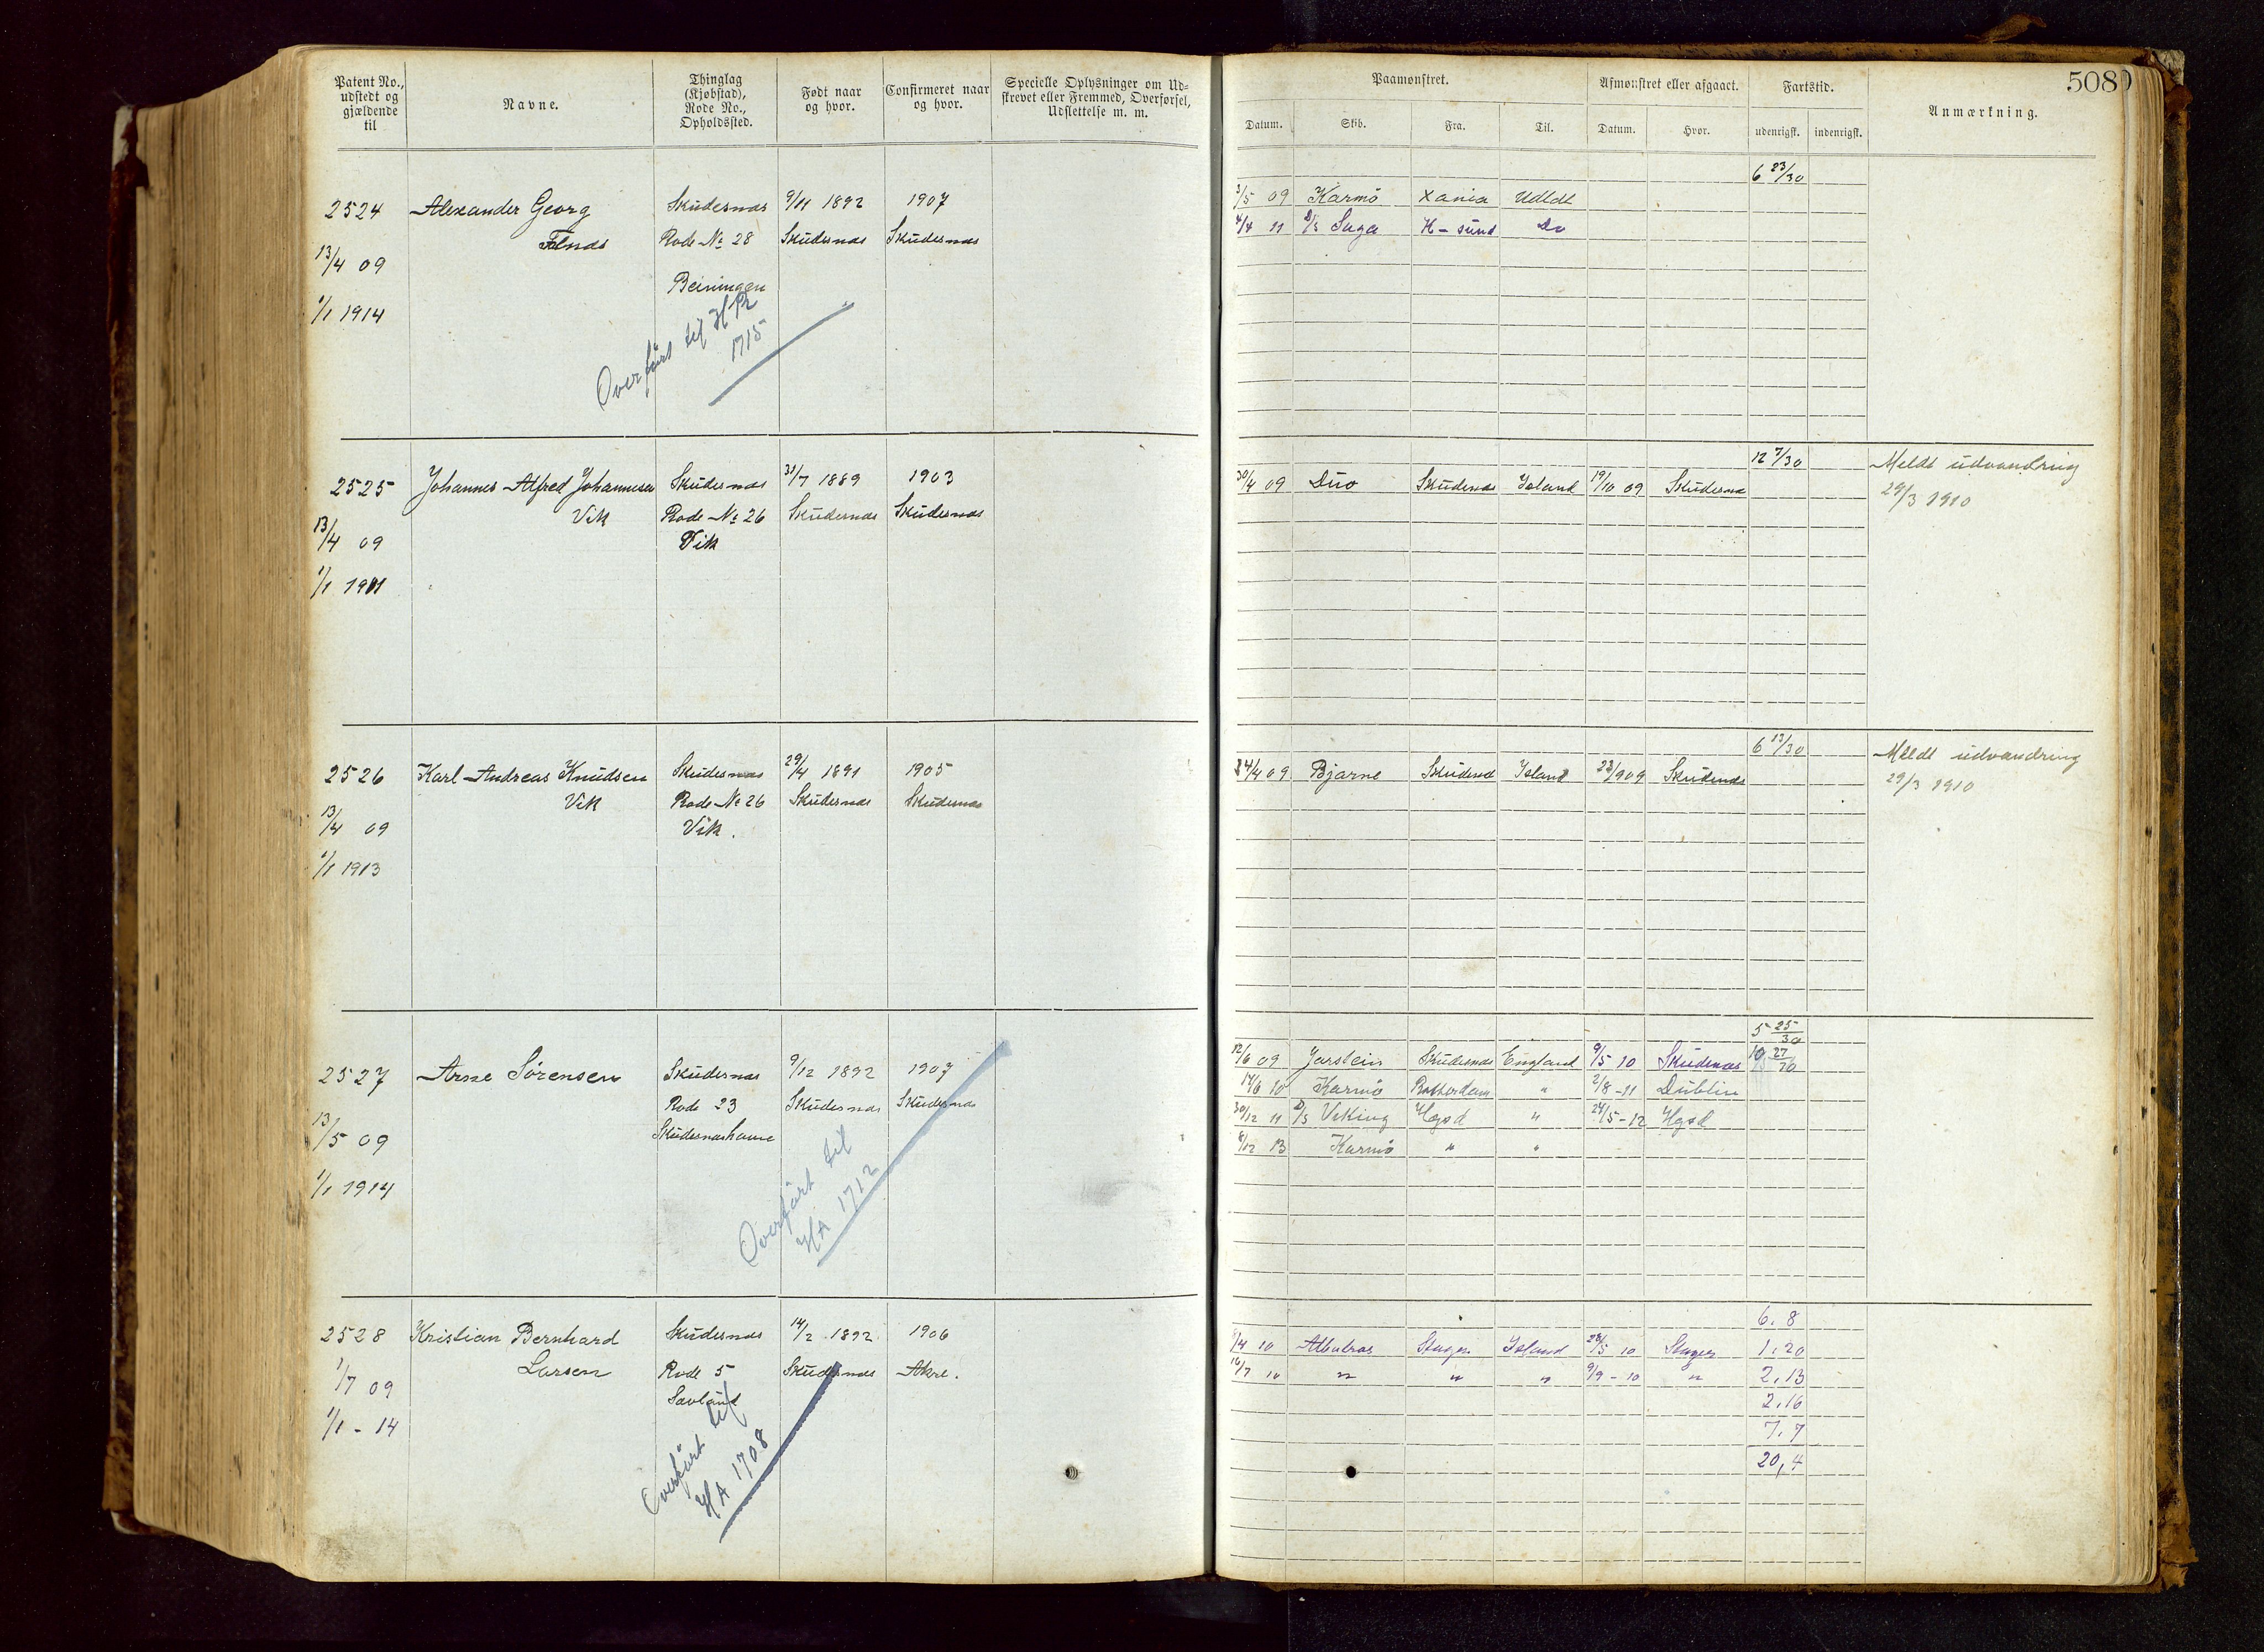 Patent No., udstedt og gjældende til
Navne.
Thinglag (Kjøbstad), Rode No., Opholdssted.
Født naar og hvor.
Confirmeret naar og hvor.
Specielle Oplysninger om Udskrevet eller Fremmed, Overførsel, Udslettelse m. m.
Paamønstret.
Afmønstret eller afgaaet.
Fartstid.
Anmærkning.
5080
Datum.
Skib.
Fra.
Til.
Datum.
Hvor.
udenrigsk.
indenrigsk.
2524 Alexander Georg Skudesnæs 9/11 1892 1907
Falnæs Rode No 28 Skudesnæs Skudesnæs
13/4 09
Beiningen
1/1 1914
Overført til H Pr
1715
6 23/30
3/5 09 Karmö Xania Udldt
4/4 11 D/S Saga H-sund Do
2525 Johannes Alfred Johannesen Skudesnæs 31/7 1889 1903
Vik Rode No 26 Skudesnæs Skudesnæs
13/4 09 Vik
1/1 1911
12 7/30
30/4 09 Duo Skudesnæs Island 19/10 09 Skudesnæs
Meldt udvandring
29/3 1910
2526 Karl Andreas Knudsen Skudesnæs 29/4 1891 1905
Vik Rode No 26 Skudesnæs Skudesnæs
13/4 09 Vik.
1/1 1913
6 13/30
24/4 09 Bjarne Skudesnæs Island 23/9 09 Skudesnæs
Meldt udvandring
29/3 1910
2527 Arne Sörensen Skudesnæs 9/12 1892 1907
Rode 23 Skudesnæs Skudesnæs
13/5 09 Skudesnæshavn
1/1 1914
Overført til
HA 1712
5 25/30
12/6 09 Jarstein Skudesnæs England 9/5 10 Skudesnæs 10 27/70
14/6 10 Karmö Rotterdam " 2/8-11 Dublin
30/12 11 D/S Viking Hgsd " 24/5-12 Hgsd
8/12 13 Karmö " "
2528 Kristian Bernhard Skudesnæs 14/2 1892 1906
Larsen Rode 5 Skudesnæs Akre.
1/7 09 Sævland
1/1 - 14
Overført til
HA 1708
6.8
/4 10 Albatros Stagen Island 28/5 10 Stagen 1.20
16/7 10 " " " 9/9-10 " 2.13
2.16
7.7
20,4